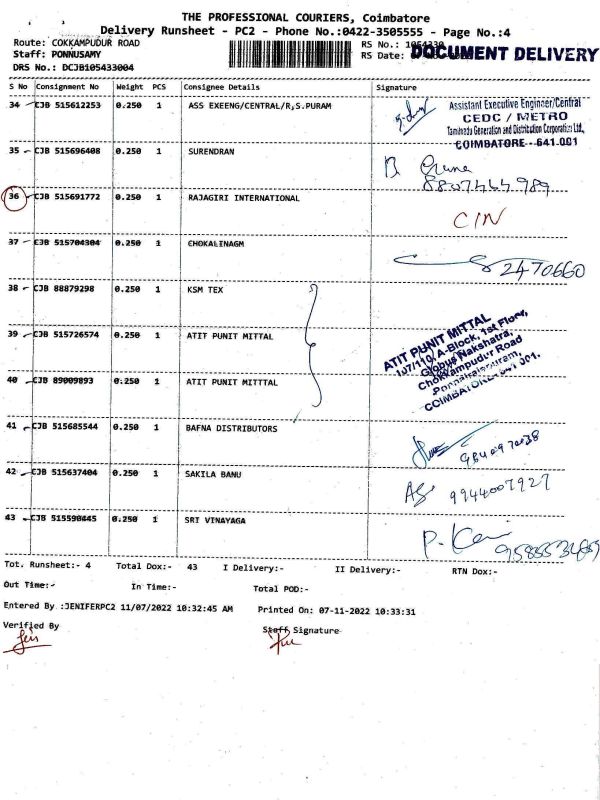 THE PROFESSIONAL COURIERS, Coimbatore
Delivery Runsheet - PC2 - Phone No.:0422-3505555 - Page No.:4
Route: COKKAMPUDUR ROAD
RS No.:
DOCUMENT DELIVERY
Staff: PONNUSAMY
RS Date:
DRS No.: DCJB105433004
S No Consignment No Weight PCS Consignee Details Signature
34 CJB 515612253 0.250 1 ASS EXEENG/CENTRAL/R,S.PURAM
Assistant Executive Engineer/Central
CEDC / METRO
Tamilnadu Generation and Distribution Corporation Ltd.,
COIMBATORE - 641.001
35 CJB 515696408 0.250 1 SURENDRAN
36 CJB 515691772 0.250 1 RAJAGIRI INTERNATIONAL
CIN
37 CJB 515704304 0.250 1 CHOKALINAGM
2470660
38 CJB 88879298 0.250 1 KSM TEX
39 CJB 515726574 0.250 1 ATIT PUNIT MITTAL
ATIT PUNIT MITTAL
107/110, A-Block, 1st Floor,
Globus Nakshatra,
Chokkampudur Road
40 CJB 89009893 0.250 1 ATIT PUNIT MITTTAL
41 CJB 515685544 0.250 1 BAFNA DISTRIBUTORS
42 CJB 515637404 0.250 1 SAKILA BANU
9944007927
43 CJB 515590445 0.250 1 SRI VINAYAGA
Tot. Runsheet:- 4 Total Dox:- 43 I Delivery:- II Delivery:- RTN Dox:-
Out Time:- In Time:- Total POD:-
Entered By :JENIFERPC2 11/07/2022 10:32:45 AM Printed On: 07-11-2022 10:33:31
Verified By Staff Signature